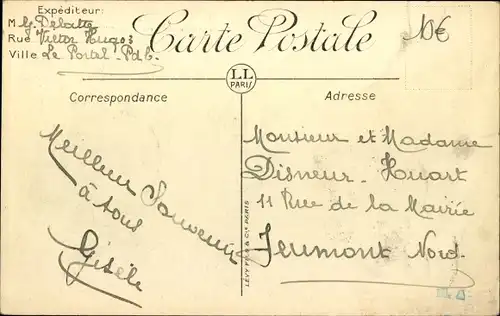 Expéditeur:
M G. Delattre
Rue Victor Hugo 3
Ville Le Portel - P.d.C.
Carte Postale
10€
LL
PARIS
Correspondance
Adresse
Meilleur Souvenir
à tous
Gisèle
LEVY FILS & Cie PARIS
Monsieur et Madame
Disneur-Huart
11 Rue de la Mairie
Jeumont Nord.